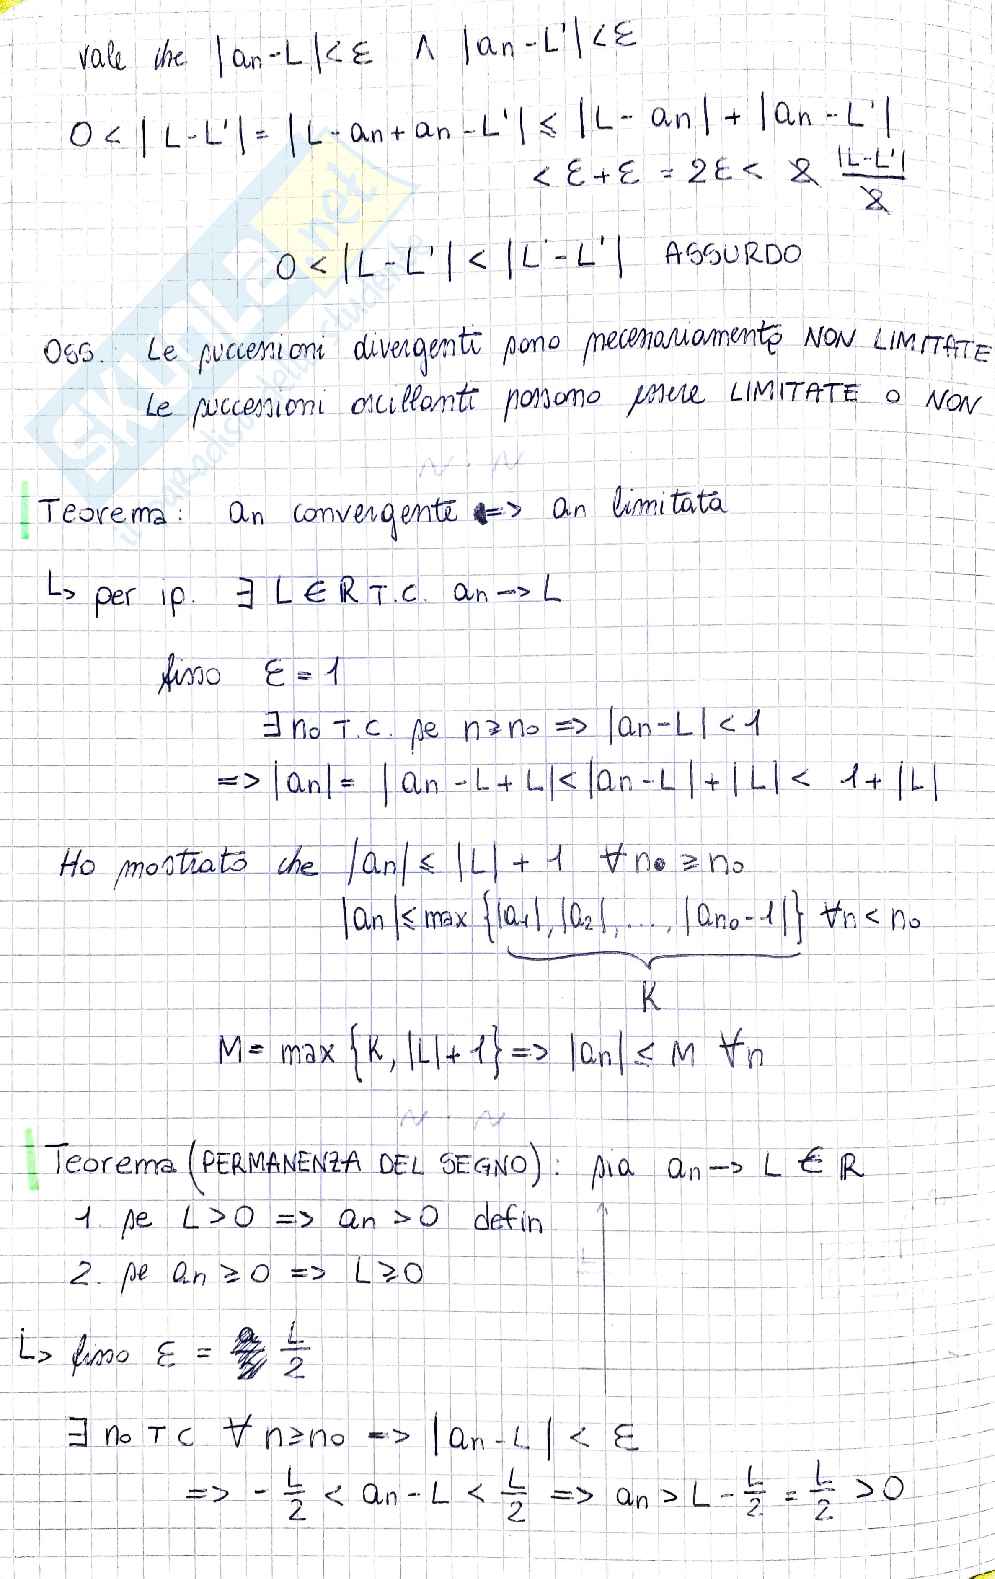 vale che |an-L|<ε ∧ |an-L'|<ε
0 < |L-L'| = |L-an+an-L'| ≤ |L-an| + |an-L'|
< ε+ε = 2ε < 2 |L-L'|/2
0 < |L-L'| < |L-L'| ASSURDO
Oss. Le successioni divergenti sono necessariamente NON LIMITATE
Le successioni oscillanti possono essere LIMITATE o NON
Teorema: an convergente => an limitata
↳ per ip. ∃ L∈R T.C. an -> L
fisso ε = 1
∃ n₀ T.C. se n≥n₀ => |an-L| < 1
=> |an| = |an-L+L| < |an-L| + |L| < 1+|L|
Ho mostrato che |an| ≤ |L|+1 ∀n ≥ n₀
|an| ≤ max {|a₁|, |a₂|, ..., |an₀-1|} ∀n < n₀
K
M = max {K, |L|+1} => |an| ≤ M ∀n
Teorema (PERMANENZA DEL SEGNO): sia an -> L ∈ R
1. se L>0 => an>0 defin
2. se an≥0 => L≥0
↳ fisso ε = L/2
∃ n₀ TC ∀n≥n₀ => |an-L| < ε
=> -L/2 < an-L < L/2 => an > L-L/2 = L/2 > 0
SKUOLA.net